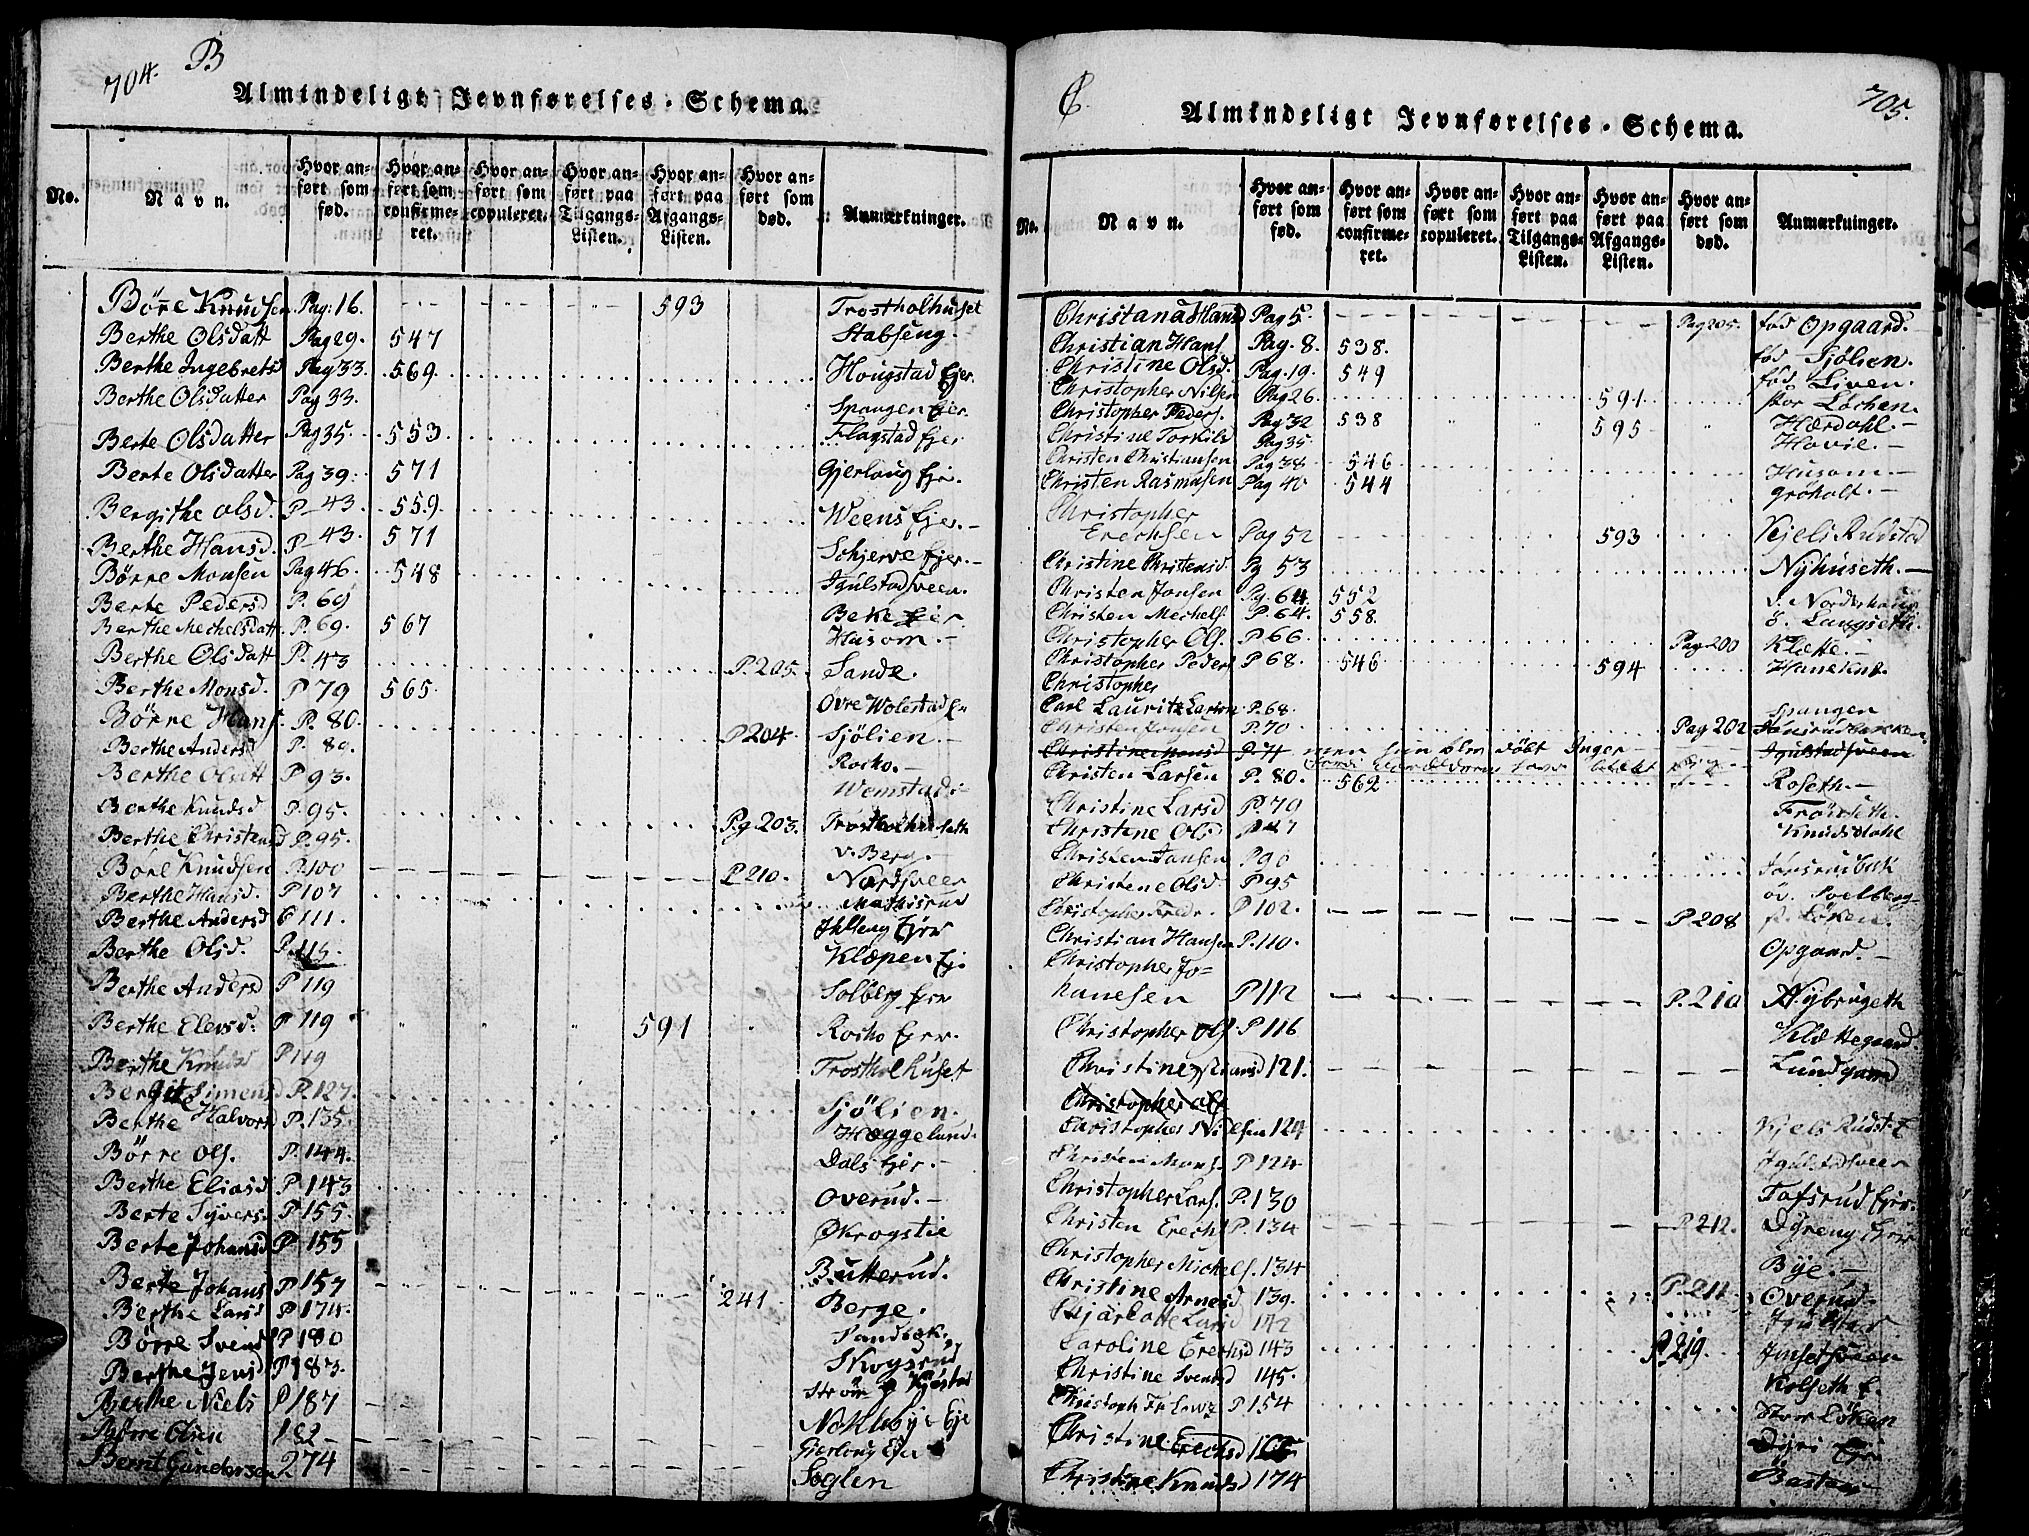 704.
B
Almindeligt Jevnførelses-Schema.
No. Navn. Hvor anført som fød. Hvor anført som confirmeret. Hvor anført som copuleret. Hvor anført paa Tilgangs-Listen. Hvor anført paa Afgangs-Listen. Hvor anført som død. Anmærkninger.
Börre Knudsen Pag: 16. 593 Trostholhuset
Berthe Olsdatt Pag 29. 547 Stabseng.
Berthe Ingebretsd Pag 33. 569. Hougstad Ejer.
Berthe Olsdatter Pag 33. Spangen Ejer.
Berte Olsdatter Pag 35. 553. Flagstad Ejer
Berte Olsdatter Pag 39. 571 Gjerloug Ejr.
Bergithe Olsd. P 43. 559. Weens Ejer.
Berthe Hansd. P 43. 571 Schjerve Ejer.
Börre Monsen Pag 46. 548 Igulstadsveen.
Berte Pedersd P. 69 Beke Ejer
Berthe Mechelsdatt. P. 69. 567 Husom.
Berthe Olsdatt P. 43 P. 205. Sande.
Berthe Monsd. P 79 565. Övre Wolestad Ej
Börre Hans. P. 80. P 204. Sjölien.
Berthe Andersd P. 80. Rocho.
Berthe Olsdt P 93. Wemstad
Berthe Knudsd P. 95. Pg. 203.
Berthe Christensd P. 95. v. Berg.
Böre Knudsen P. 100 P 210. Nordsveen
Berthe Hansd. P 107 Mathisrud
Berthe Andersd P 111. Ejer
Berthe Olsd. P. 115. Klæpen Ej.
Berthe Andersd P 119 Solberg Ejer
Berthe Elevsd. P 119 591 Rocho Ejer.
Berthe Knuds P 119 Trostholhuset
Bergit Simensd P. 127. Sjölien.
Berthe Halvors P. 135. Hæggelund.
Börre Ols. P. 144. Dals Ejer.
Berthe Eliasd P. 143 Overud.
Berte Syvers. P 155. Ökrogstie
Berte Johansd P 155 Butterud.
Berte Johans P 157 241 Berge.
Berthe Larsd P 174. Sandbæk.
Börre Svend P 180
Berthe Jensd P 183.
Berthe Niels P 187 Nokleby Eje
Börre Olsen 182 Gjerloug Eje
Bernt Gundersen 274 Soglen
C.
705.
Almindeligt Jevnførelses-Schema.
No. Navn. Hvor anført som fød. Hvor anført som confirmeret. Hvor anført som copuleret. Hvor anført paa Tilgangs-Listen. Hvor anført paa Afgangs-Listen. Hvor anført som død. Anmærkninger.
Christana Hansd Pag 5. Pag 205. fød Opgaard.
Christian Hans. Pag. 8. 538. fød Sjölien.
Christine Olsd. Pag. 19. 549 fød Lien.
Christopher Nilsen Pag 26. 591 stor Löchen
Christopher Peders. Pag 32 538 595 Hærdahl.
Christine Torkilds Pag 35. Hovie.
Christen Christiansen Pag 38 546 Husom.
Christen Rasmusen Pag 40 544 gröholt.
Christopher
Erechsen Pag 52 593 Kjels Rudstad
Christine Christensd. Pg 53 Nyhuseth.
Christen Jonsen Pg. 64. 552
Christen Mechels. P. 64. 558. Langseth.
Christopher Ols. P 66. Pag 200 Klætte.
Christopher Peders P 68. 546 594
Christopher
Carl Lauritz Larsen P. 68. Spangen
Christen Jonsen P. 70 Pag 202
Christine Monsd P 74 Igulstadsveen
Christen Larsen P. 80. 562 Roseth.
Christine Larsd P. 79 Fröiseth.
Christine Olsd Knudsdahl
Christen Jansen P 90
Christene Olsd. P 95
Christopher Fredr. P 102. P 208 Löken.
Christian Hansen P. 110. Opgaard.
Christopher Jo-
hanesen P 112 P. 210 Nybrugeth
Christopher Ols P 116 Klættegaard
Christine 121. Lundgaard
Christopher Ols
Christopher Nielsen 124 Kjels Rudst. E
Christen Mons. P 124 Igulstadsveen
Christopher Lars. P. 130 Tofsrud Ejer.
Christen Erechs P. 134 P. 212. Dyreng Ejer
Christopher Michels. 134 Bye.
Christine Arnesd 139. P. 211 Overud
Larsd 142 Igulstad
Caroline Erechsd 143 P. 219
Christine Svendsd 145. Kolseth E.
Christoph P 154 Stor Löken
Christine Erechsd
Christine Knudsd 174 Basten